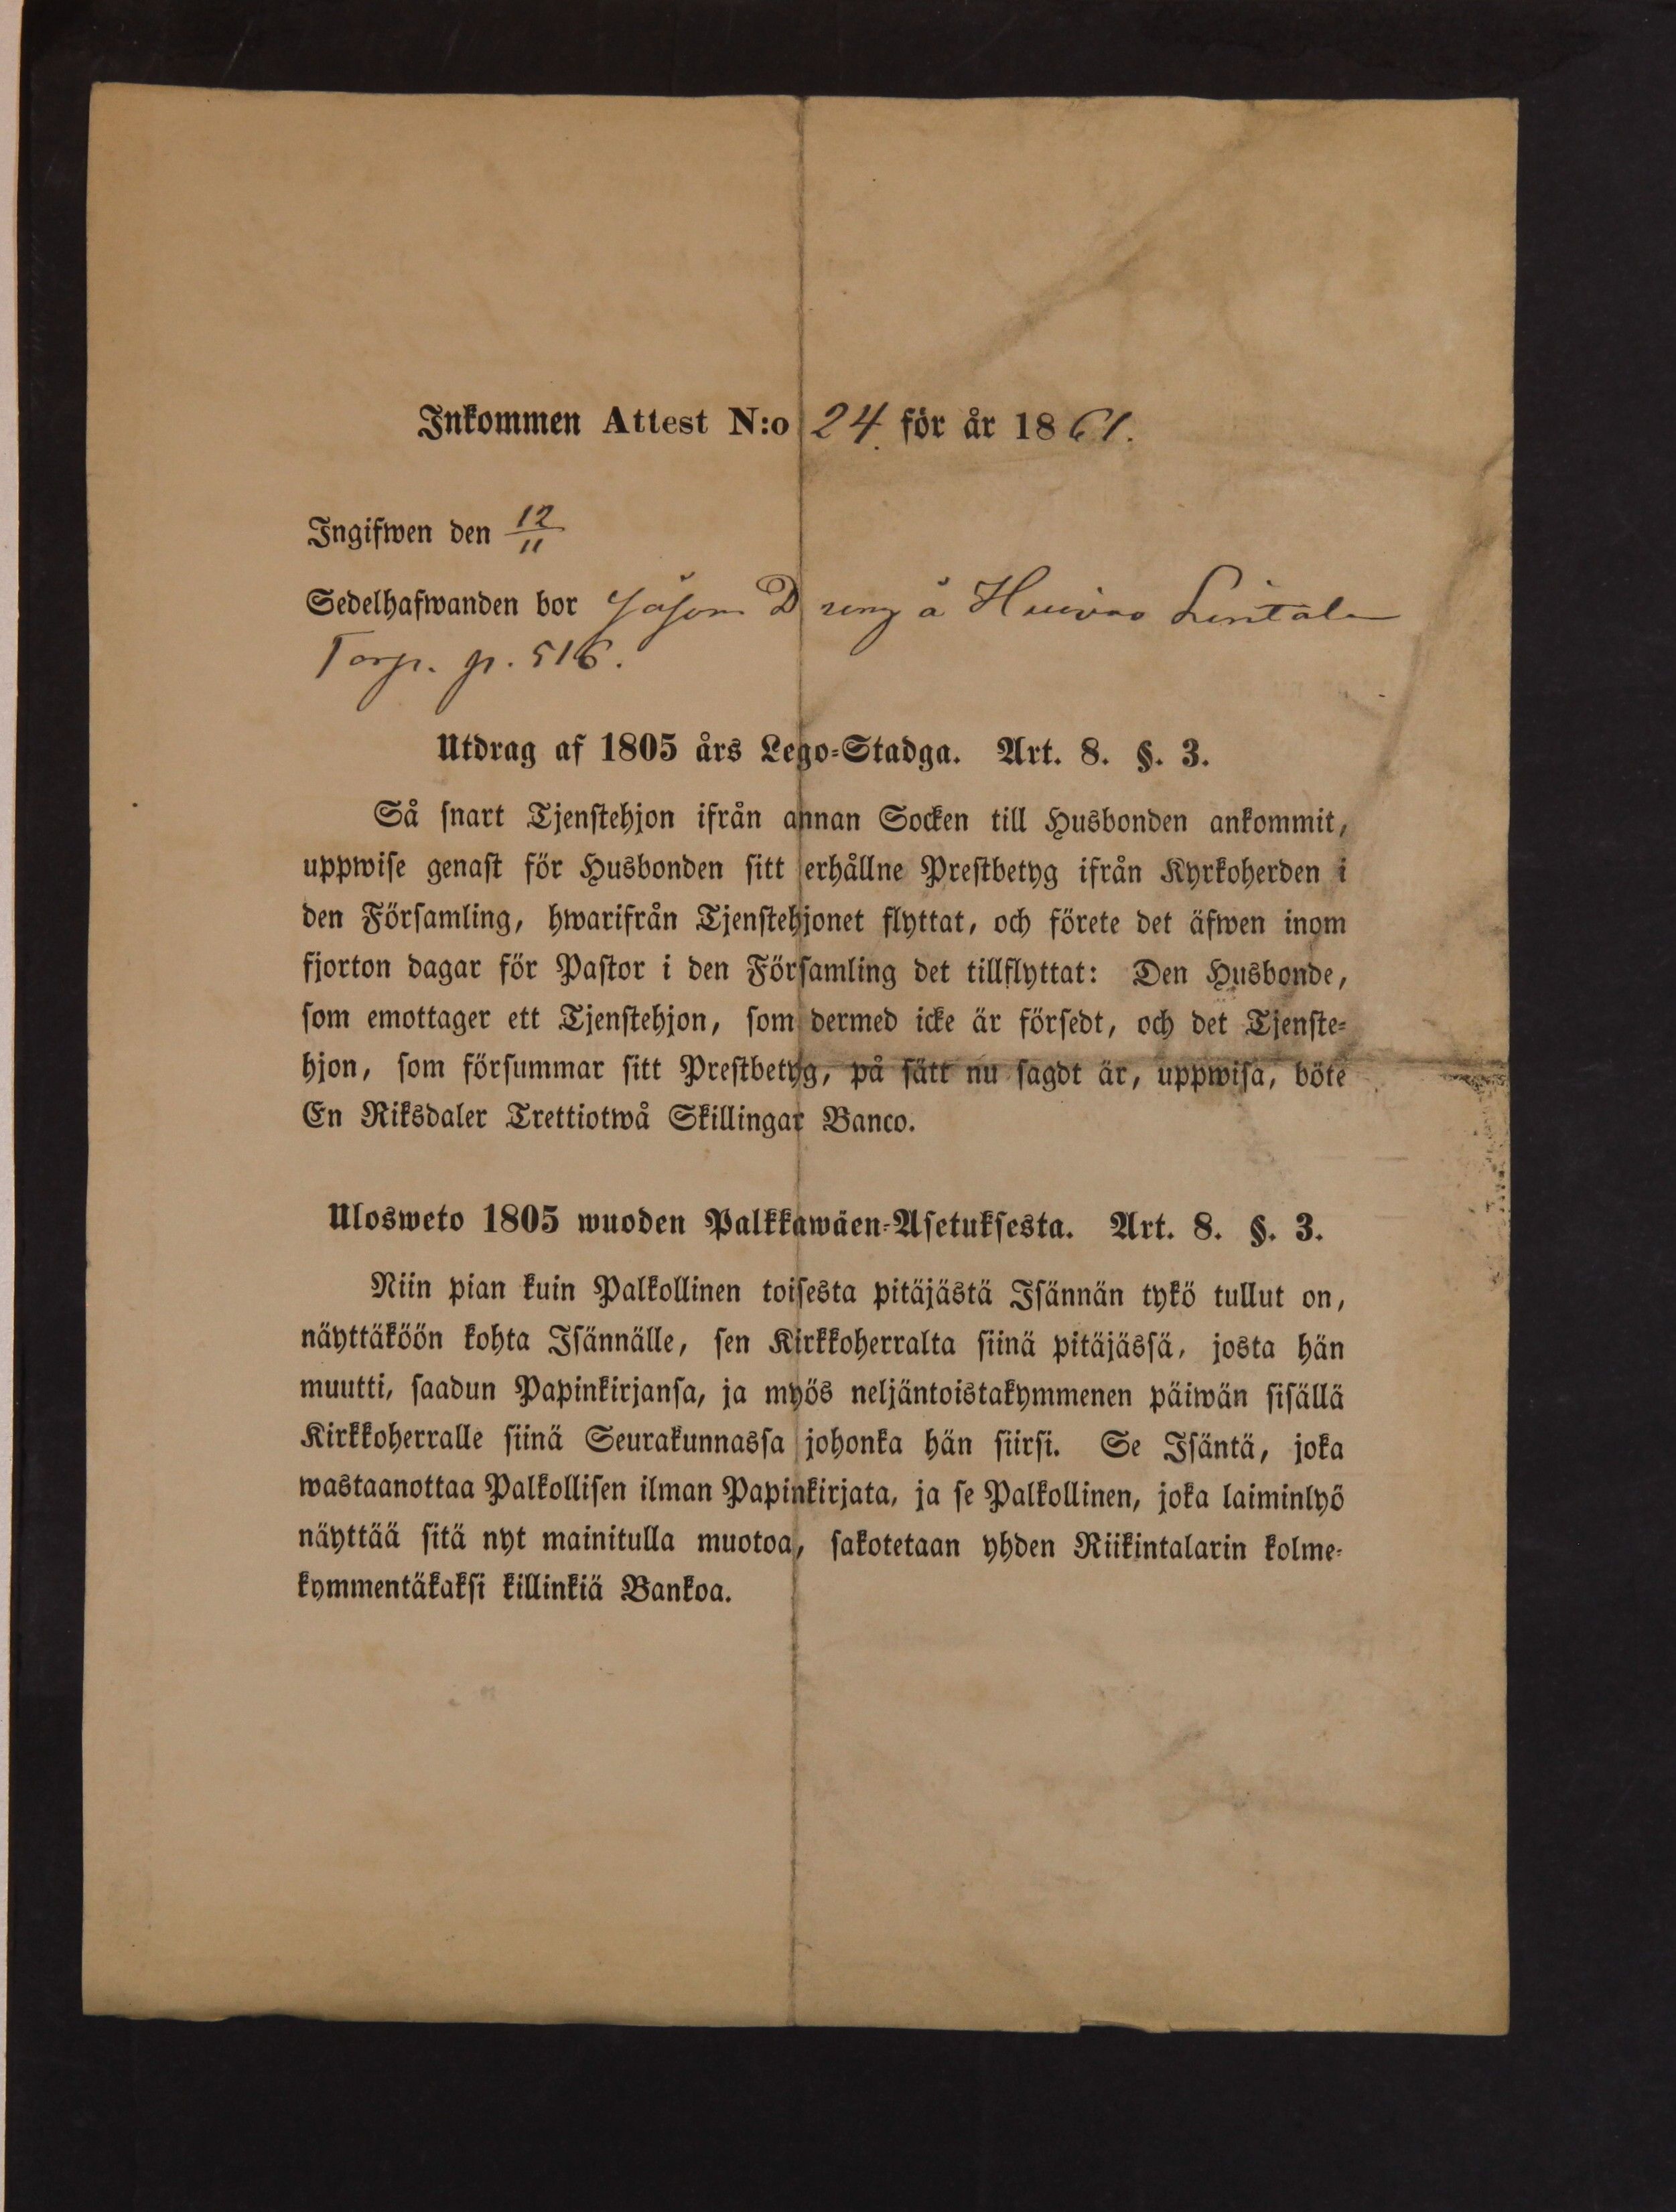 Inkommen Attest N:o 24 för år 1861.
Ingifwen den 12/11
Sedelhafwanden bor såsom Dreng å Lintala
Torp. p. 516.
Utdrag af 1805 års Lego-Stadga. Art. 8. §. 3.
Så snart Tjenstehjon ifrån annan Socken till Husbonden ankommit,
uppwise genast för Husbonden sitt erhållne Prestbetyg ifrån Kyrkoherden i
den Församling, hwarifrån Tjenstehjonet flyttat, och förete det äfwen inom
fjorton dagar för Pastor i den Församling det tillflyttat: Den Husbonde,
som emottager ett Tjenstehjon, som dermed icke är försedt, och det Tjenste-
hjon, som försummar sitt Prestbetyg, på sätt nu sagdt är, uppwisa, böte
En Riksdaler Trettiotwå Skillingar Banco.
Ulosweto 1805 wuoden Palkkawäen-Asetuksesta. Art. 8. §. 3.
Niin pian kuin Palkollinen toisesta pitäjästä Isännän tykö tullut on,
näyttäköön kohta Isännälle, sen Kirkkoherralta siinä pitäjässä, josta hän
muutti, saadun Papinkirjansa, ja myös neljäntoistakymmenen päiwän sisällä
Kirkkoherralle siinä Seurakunnassa johonka hän siirsi. Se Isäntä, joka
wastaanottaa Palkollisen ilman Papinkirjata, ja se Palkollinen, joka laiminlyö
näyttää sitä nyt mainitulla muotoa, sakotetaan yhden Riikintalarin kolme-
kymmentäkaksi killinkiä Bankoa.